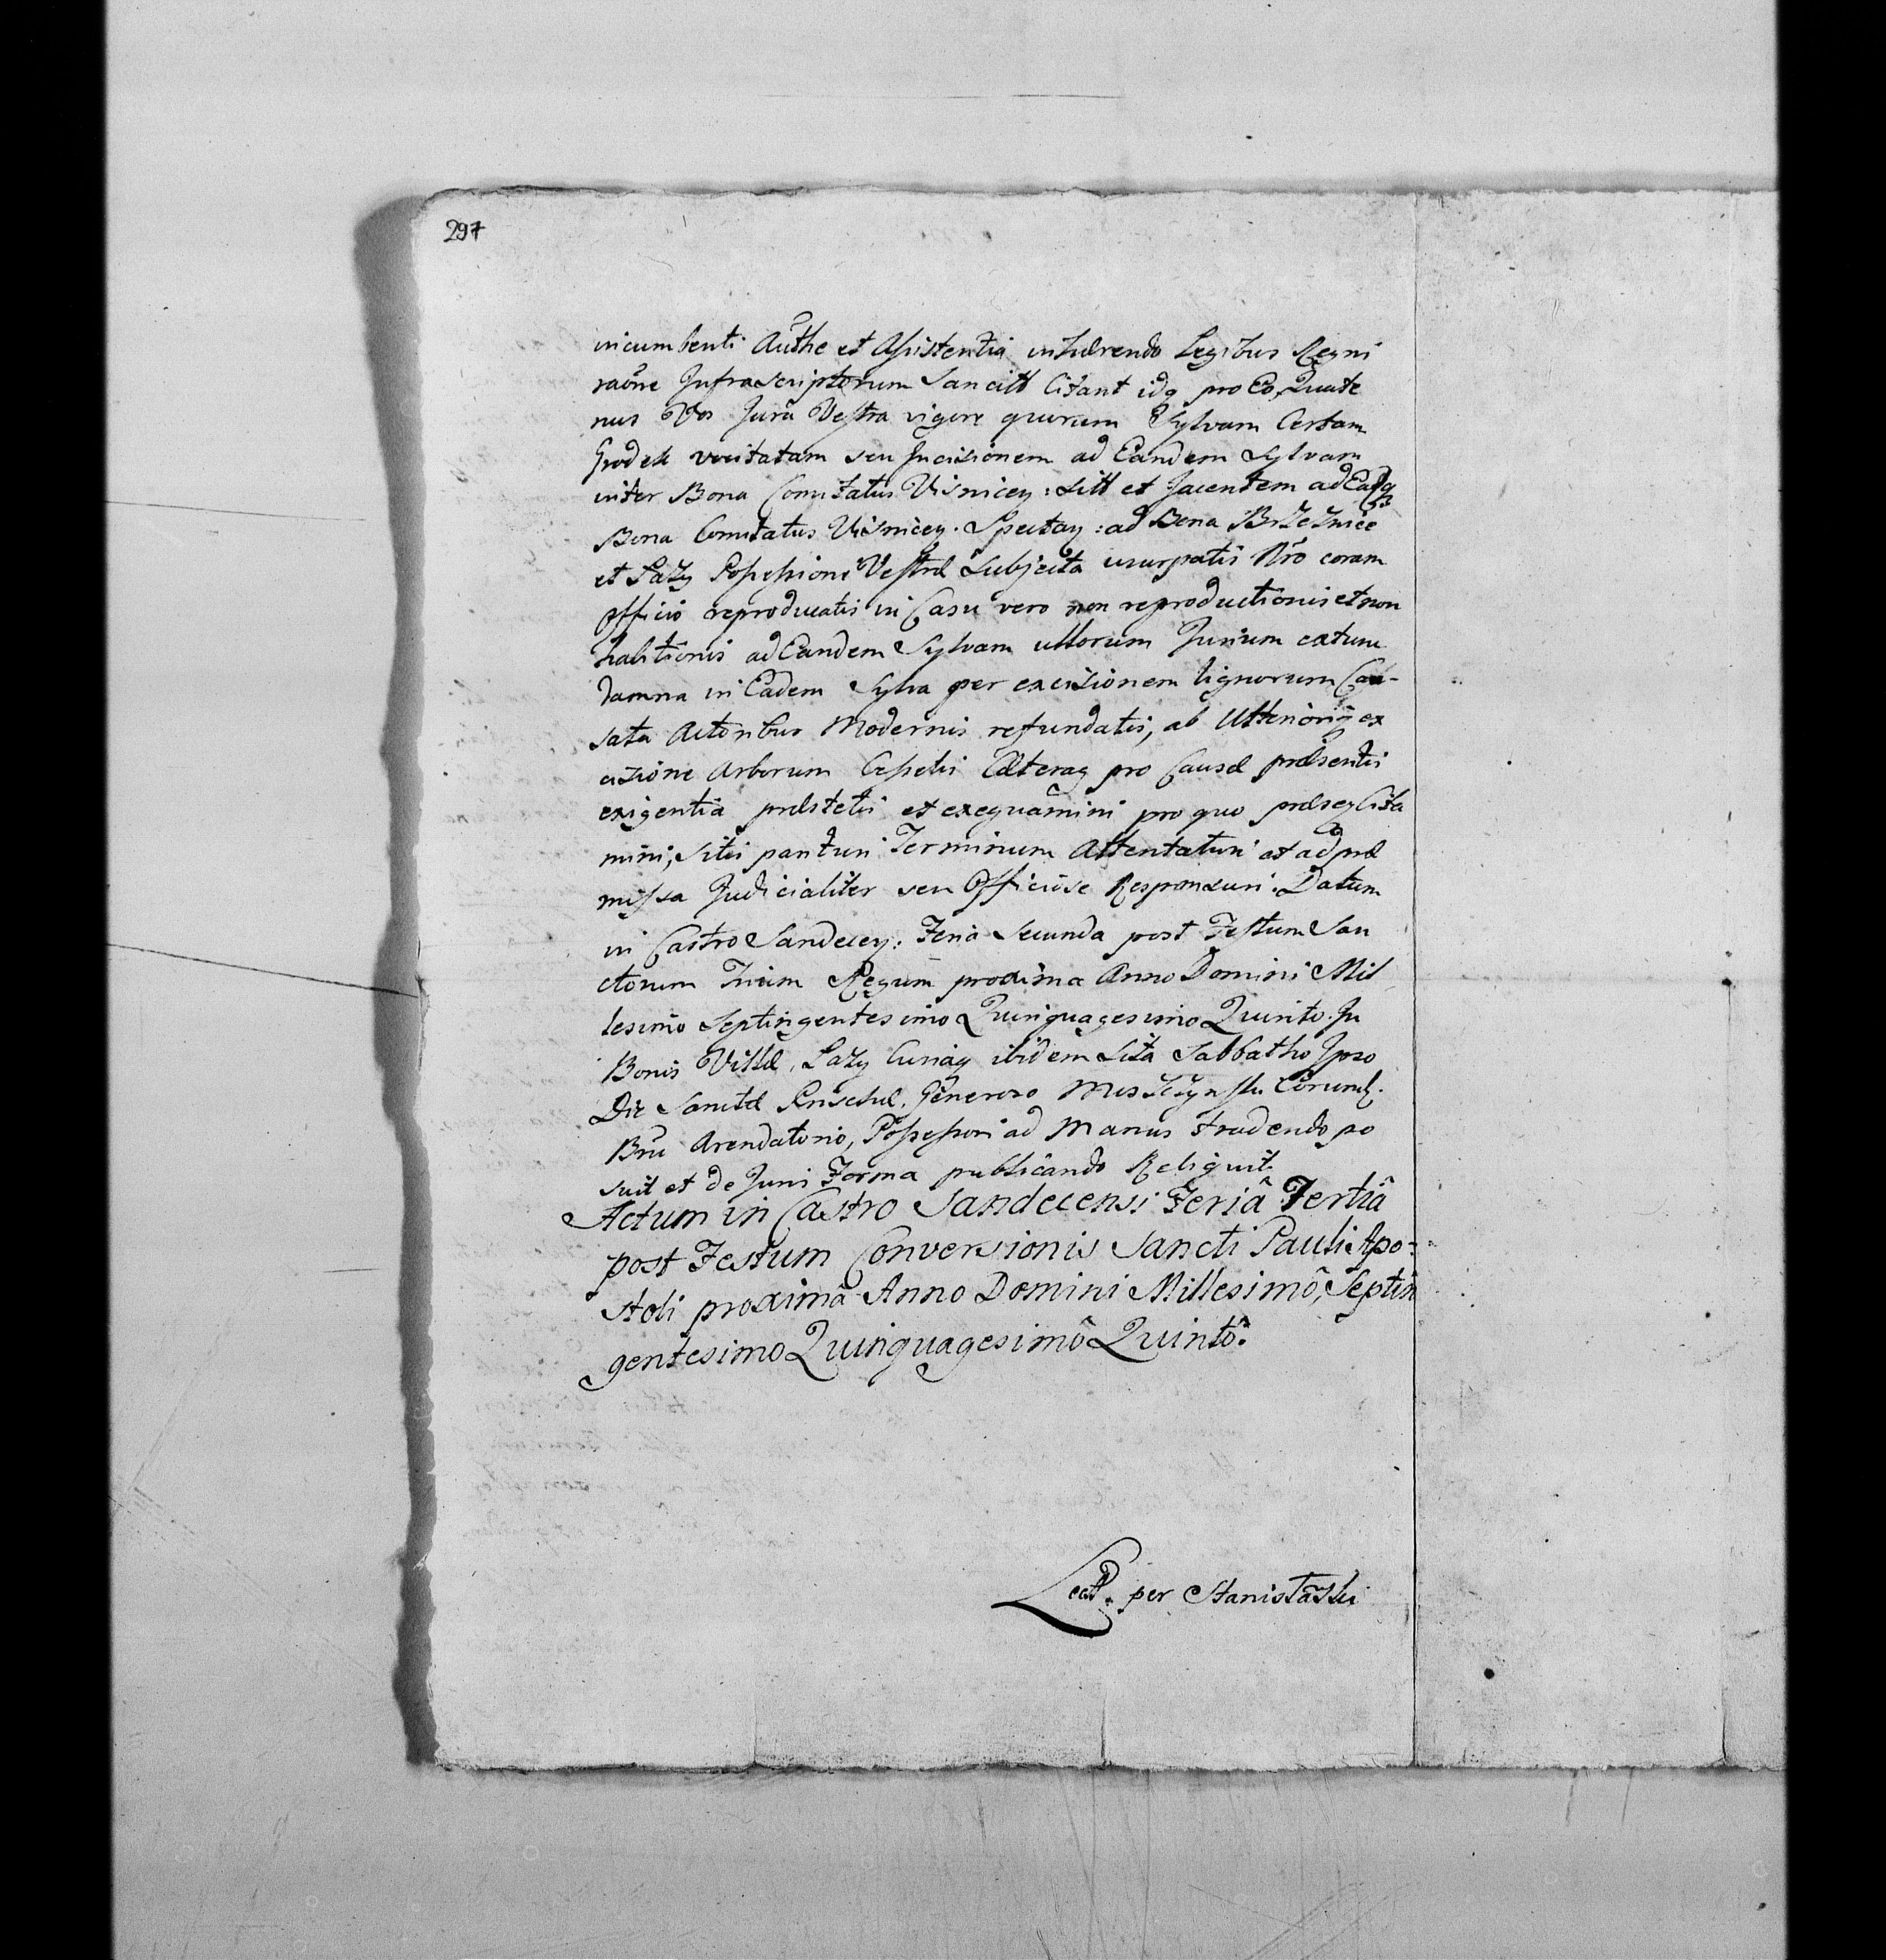 297
incumbenti Authe et Assistentia inhærendo Legibus Regni
raõne Infrascriptorum Sancitt Citant idq pro Eo, Quate
nus Vos Jura Vestra vigore quorum Sylvam Certam
Grodek vocitatam seu Incisionem ad Eandem Sylvam
inter Bona Comitatus Visnicen: Sitt et Jacentem ad
Bona Comitatus Visnicen. Spectan: ad Bona Brzeznice
et Łazy Possessioni Vestræ Subjecta usurpatis Nro coram
Officio reproducatis in Casu vero non reproductionis et non
habitionis ad Eandem Sylvam ullorum Jurium extunc
damna in Eadem Sylva per excisionem lignorum Cau-
sata Actoribus Modernis refundatis, ab Ulteriori ex
cisione Arborum Cessetis Cæteraq pro Causæ præsentis
exigentia præstetis et exequamini pro quo præsen Cita
mini, sitis parituri Terminum Attentaturi et ad præ
missa Judicialiter seu Officiose Responsuri. Datum
in Castro Sandecen: Feria Secunda post Festum San
ctorum Trium Regum proxima Anno Domini Mil
lesimo Septingentesimo Quinquagesimo Quinto. In
Bonis Villæ, Łazy Curiaq ibidem Sita Sabbatho Ipso
Die Sanctæ Priscæ. Generoso Eorund.
Bru Arendatorio, Possessori ad Manus tradendo po
suit et de Juri Forma publicando Reliquit.
Actum in Castro Sandecensi Feriâ Tertiâ
post Festum Conversionis Sancti Pauli Apo-
stoli proximâ Anno Domini Millesimô, Septin
gentesimo Quinquagesimô Quintô.
Lect. per Stanisławski